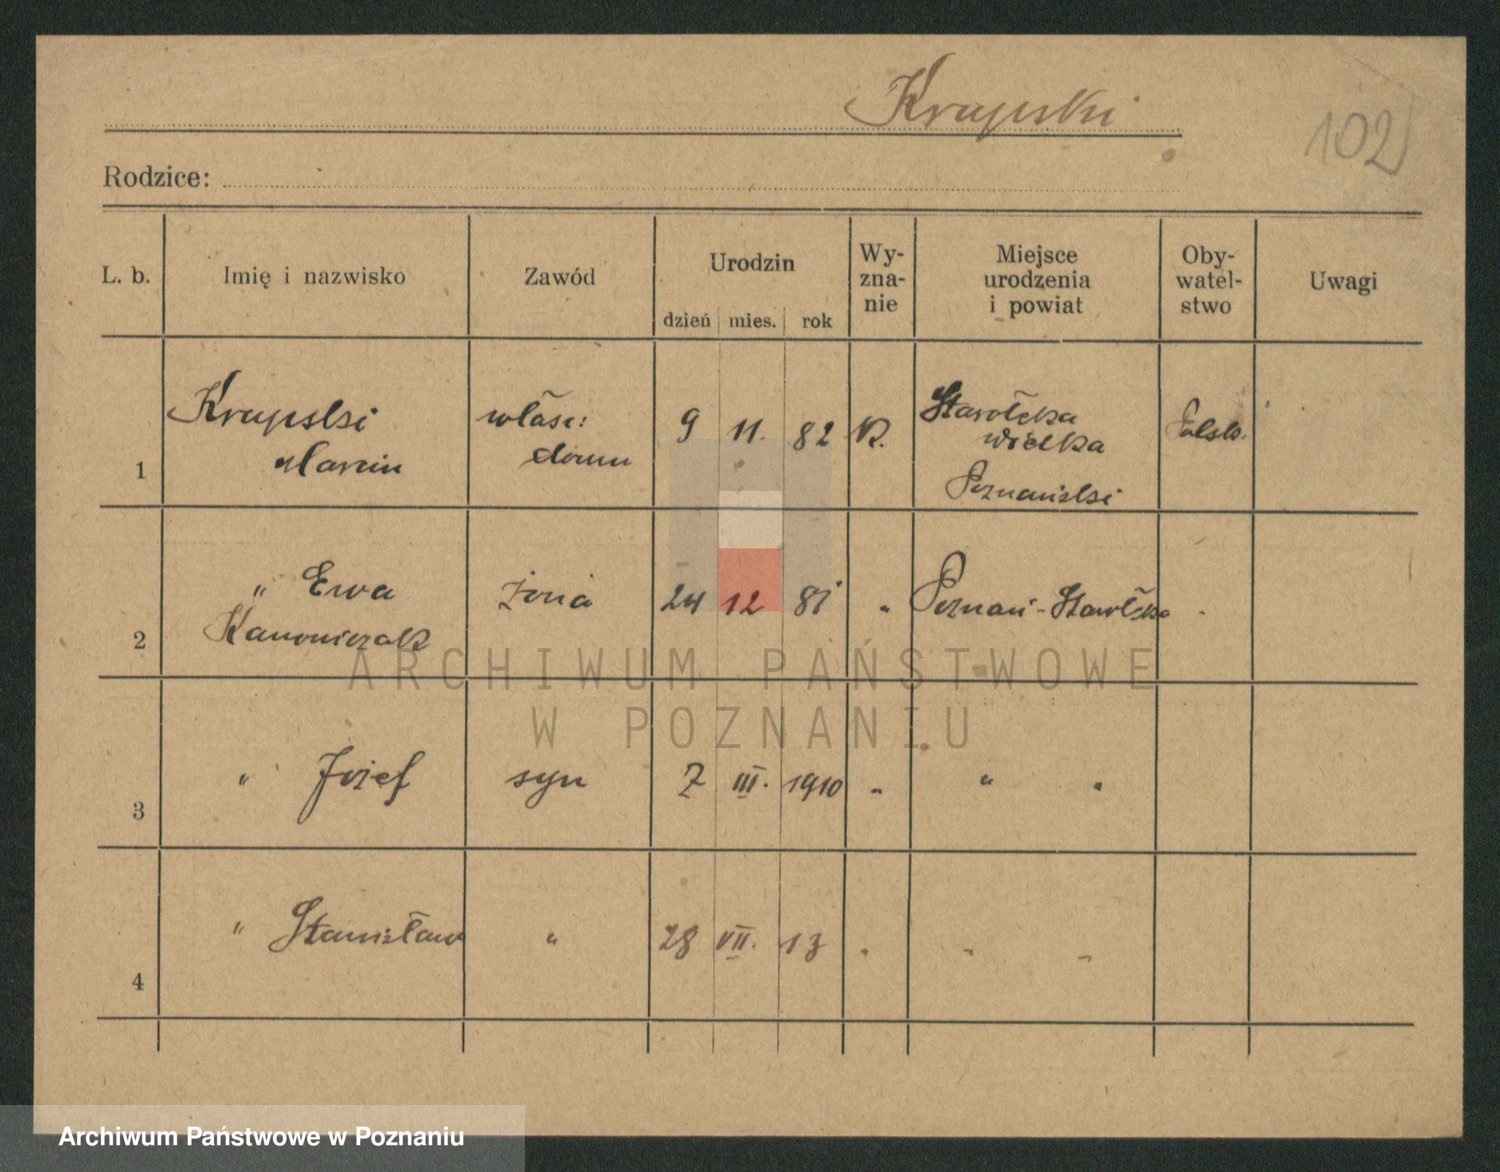 Krapski
102
Rodzice:
L. b.
Imię i nazwisko
Zawód
Urodzin
dzień mies. rok
Wy-
zna-
nie
Miejsce
urodzenia
i powiat
Oby-
watel-
stwo
Uwagi
1
Krapski
Marcin
włásc:
domu
9 11. 82
K.
Starołęka
wielka
Poznański
Polsk.
2
" Ewa
Kanoniczak
żona
24 12 81
"
Poznań-Starołęka
3
" Józef
syn
7 III. 1910
"
" "
4
" Stanisław
"
28 VII. 13
"
" "
ARCHIWUM PAŃSTWOWE
W POZNANIU
Archiwum Państwowe w Poznaniu